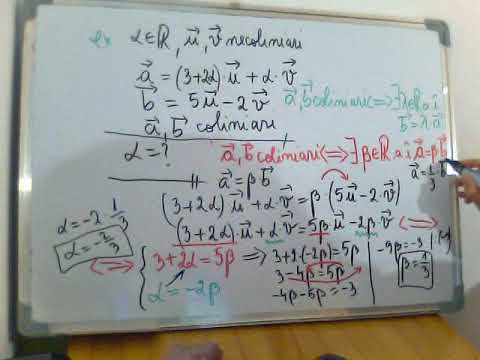 ex α∈ℝ, u⃗, v⃗ necoliniari
a⃗ = (3+2α)·u⃗ + α·v⃗
b⃗ = 5u⃗ - 2v⃗
a⃗, b⃗ coliniari
a⃗, b⃗ coliniari <=> ∃λ∈ℝ a.î
b⃗ = λ·a⃗
α = ?
a⃗, b⃗ coliniari <=> ∃β∈ℝ a.î. a⃗ = β·b⃗
a⃗ = 1/3 b⃗
a⃗ = β b⃗
(3+2α)·u⃗ + α·v⃗ = β·(5u⃗ - 2·v⃗)
(3+2α)·u⃗ + α·v⃗ = 5β·u⃗ - 2β·v⃗ <=>
<=> { 3+2α = 5β
α = -2β
=> 3+2·(-2β) = 5β
3-4β = 5β
-4β-5β = -3
-9β = -3 |:(-9)
β = 1/3
α = -2·1/3
α = -2/3